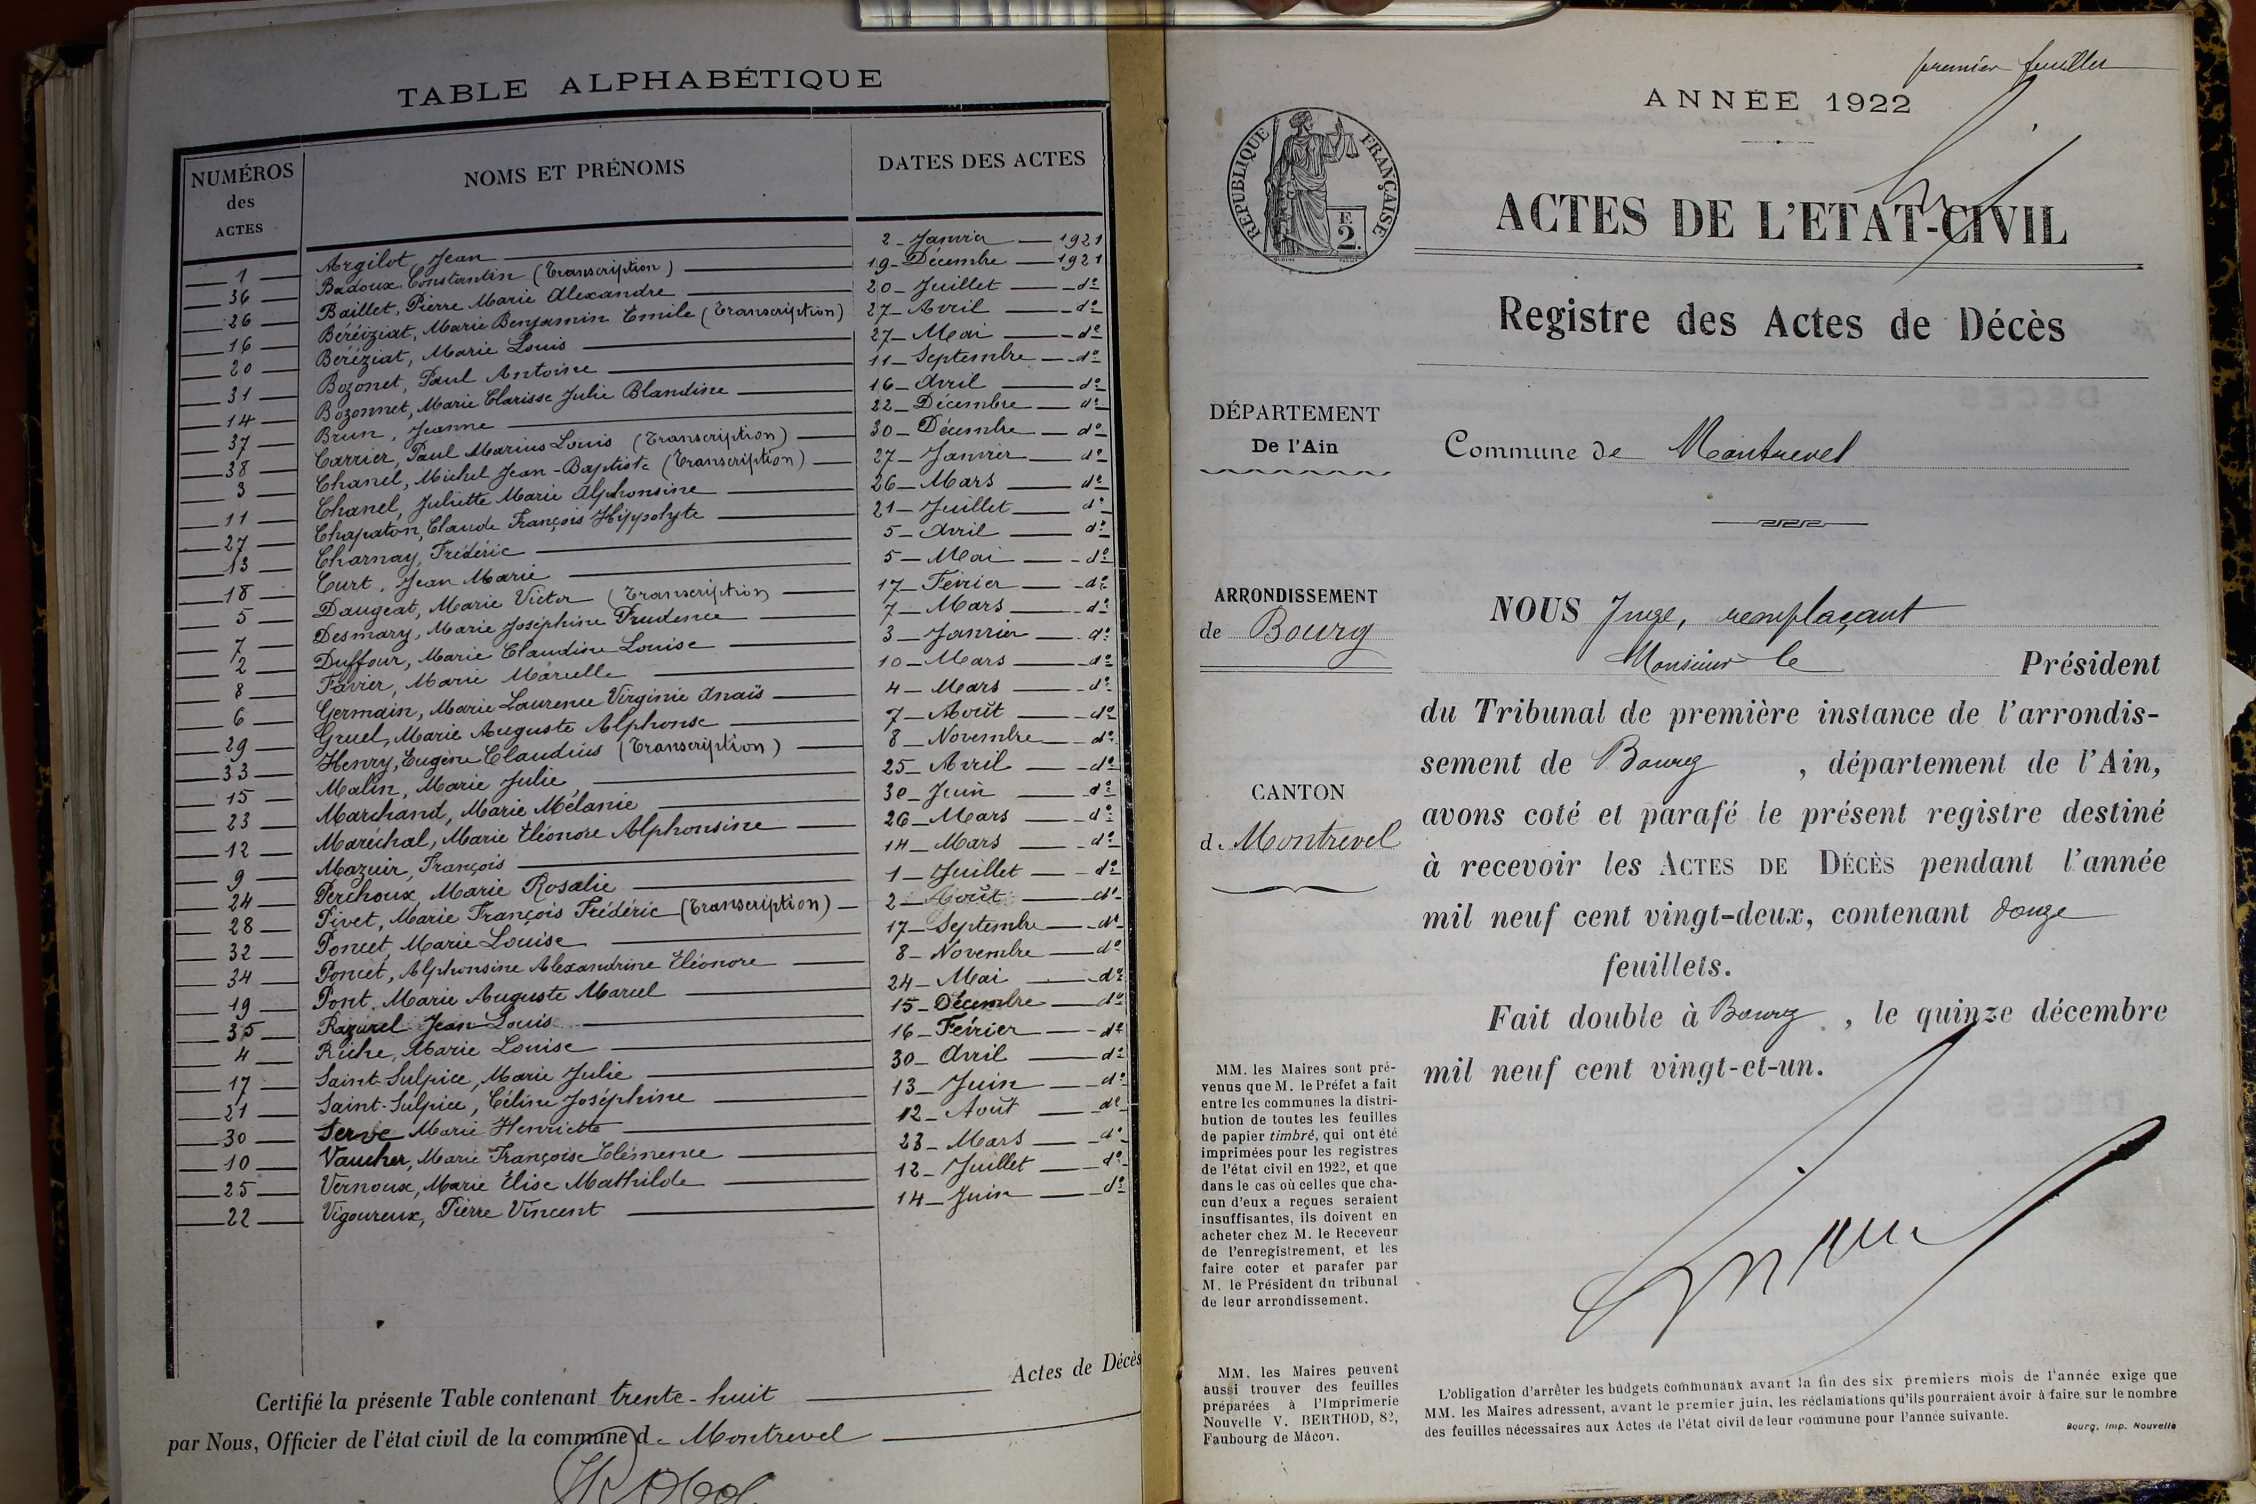 TABLE ALPHABÉTIQUE
NUMÉROS des ACTES NOMS ET PRÉNOMS DATES DES ACTES
1 Argilot, Jean 2 Janvier 1921
36 Badoux Constantin (Transcription) 19 Décembre 1921
26 Baillet, Pierre Marie Alexandre 20 Juillet do
16 Béréiziat, Marie Benjamin Emile (Transcription) 27 Avril do
20 Beréziat, Marie Louis 27 Mai do
31 Bozonet, Paul Antoine 11 Septembre do
14 Bozonnet, Marie Clarisse Julie Blandine 16 Avril do
37 Brun, Jeanne 22 Décembre do
38 Carrier, Paul Marius Louis (Transcription) 30 Décembre do
3 Chanel, Michel Jean-Baptiste (Transcription) 27 Janvier do
11 Chanel, Juliette Marie Alphonsine 26 Mars do
27 Chapaton, Claude François Hippolyte 21 Juillet do
13 Charnay, Frédéric 5 Avril do
18 Curt, Jean Marie 5 Mai do
5 Daugeat, Marie Victor (Transcription) 17 Février do
7 Desmary, Marie Joséphine Prudence 7 Mars do
2 Duffour, Marie Claudine Louise 3 Janvier do
8 Favier, Marie Marcelle 10 Mars do
6 Germain, Marie Laurence Virginie Anaïs 4 Mars do
29 Gruel, Marie Auguste Alphonse 7 Août do
33 Henry, Eugène Claudius (Transcription) 8 Novembre do
15 Malin, Marie Julie 25 Avril do
23 Marchand, Marie Mélanie 30 Juin do
12 Maréchal, Marie Eléonore Alphonsine 26 Mars do
9 Mazuir, François 14 Mars do
24 Perchoux, Marie Rosalie 1 Juillet do
28 Pivet, Marie François Frédéric (Transcription) 2 Août do
32 Poncet, Marie Louise 17 Septembre do
34 Poncet, Alphonsine Alexandrine Eléonore 8 Novembre do
19 Pont, Marie Auguste Marcel 24 Mai do
35 Razurel Jean Louis 15 Décembre do
4 Riche, Marie Louise 16 Février do
17 Saint-Sulpice, Marie Julie 30 Avril do
21 Saint-Sulpice, Céline Joséphine 13 Juin do
30 Serve Marie Henriette 12 Août do
10 Vaucher, Marie Françoise Clémence 23 Mars do
25 Vernoux, Marie Elise Mathilde 12 Juillet do
22 Vigoureux, Pierre Vincent 14 Juin do
Certifié la présente Table contenant trente-huit Actes de Décès
par Nous, Officier de l'état civil de la commune de Montrevel
premier feuillet
ANNÉE 1922
RÉPUBLIQUE FRANÇAISE
F.
2.
ACTES DE L'ETAT-CIVIL
Registre des Actes de Décès
DÉPARTEMENT
De l'Ain
Commune de Montrevel
ARRONDISSEMENT
de Bourg
CANTON
de Montrevel
NOUS Juge, remplaçant
Monsieur le Président
du Tribunal de première instance de l'arrondis-
sement de Bourg, département de l'Ain,
avons coté et parafé le présent registre destiné
à recevoir les ACTES DE DÉCÈS pendant l'année
mil neuf cent vingt-deux, contenant douze
feuillets.
Fait double à Bourg, le quinze décembre
mil neuf cent vingt-et-un.
MM. les Maires sont pré-
venus que M. le Préfet a fait
entre les communes la distri-
bution de toutes les feuilles
de papier timbré, qui ont été
imprimées pour les registres
de l'état civil en 1922, et que
dans le cas où celles que cha-
cun d'eux a reçues seraient
insuffisantes, ils doivent en
acheter chez M. le Receveur
de l'enregistrement, et les
faire coter et parafer par
M. le Président du tribunal
de leur arrondissement.
MM. les Maires peuvent
aussi trouver des feuilles
préparées à l'Imprimerie
Nouvelle V. BERTHOD, 82,
Faubourg de Mâcon.
L'obligation d'arrêter les budgets communaux avant la fin des six premiers mois de l'année exige que
MM. les Maires adressent, avant le premier juin, les réclamations qu'ils pourraient avoir à faire sur le nombre
des feuilles nécessaires aux Actes de l'état civil de leur commune pour l'année suivante.
Bourg, Imp. Nouvelle